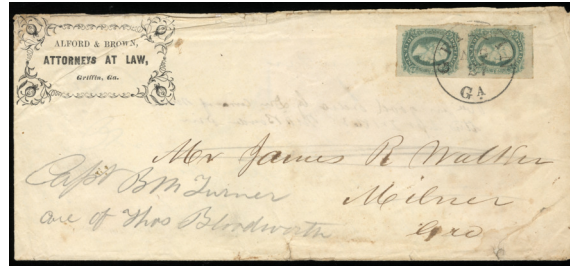 ALFORD & BROWN,
ATTORNEYS AT LAW,
Griffin, Ga.
GA
Mr James R Walker
Milner
Geo
Capt B M Turner
care of Thos Bloodworth